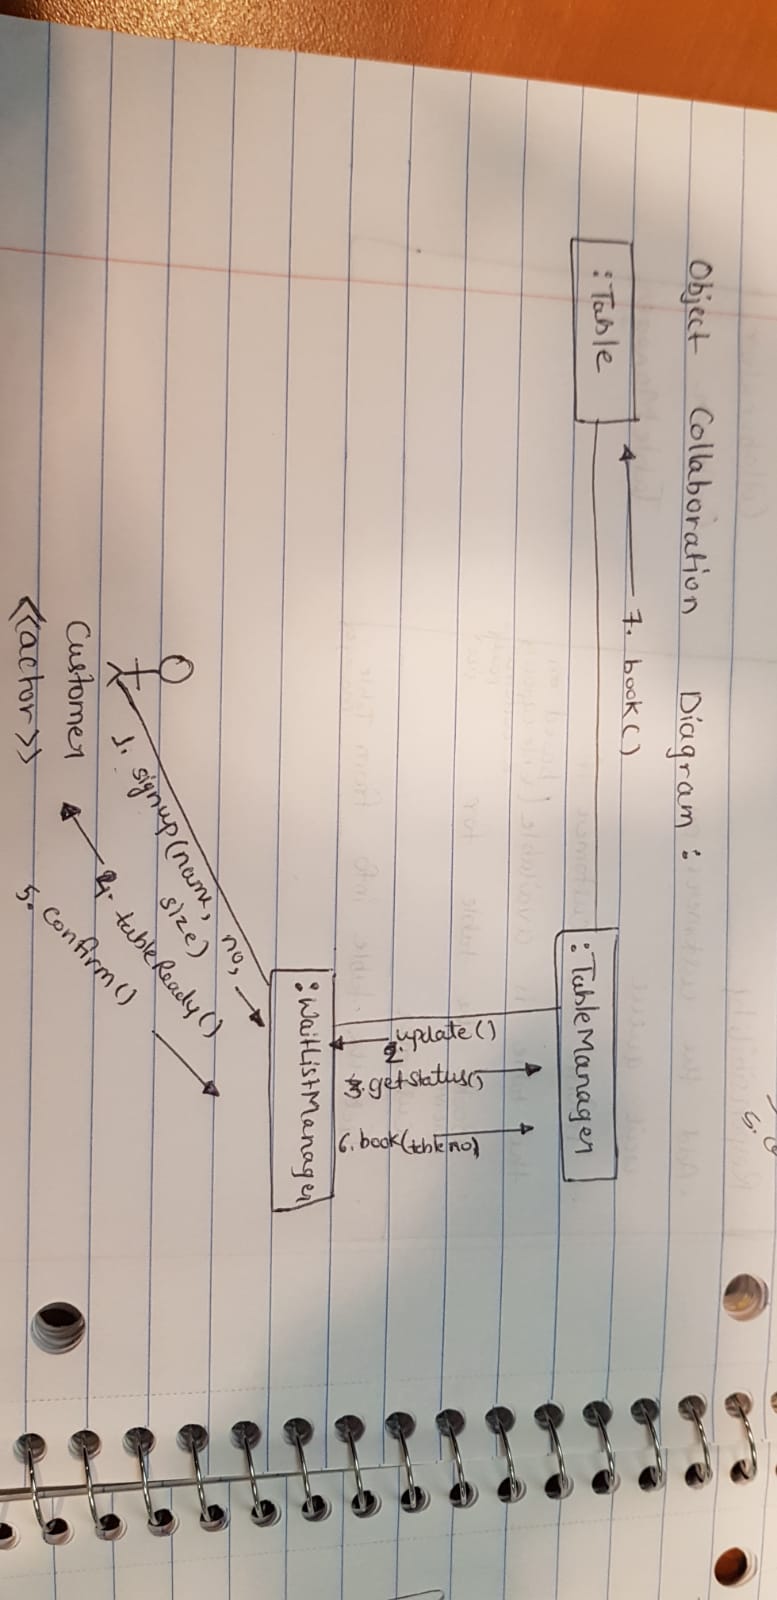 Object Collaboration Diagram:
7. book()
:Table
:TableManager
2. update()
3. getstatus()
6. book(tbl no)
:WaitListManager
1. signup(name, no,
size)
4. tableReady()
5. confirm()
Customer
<<actor>>